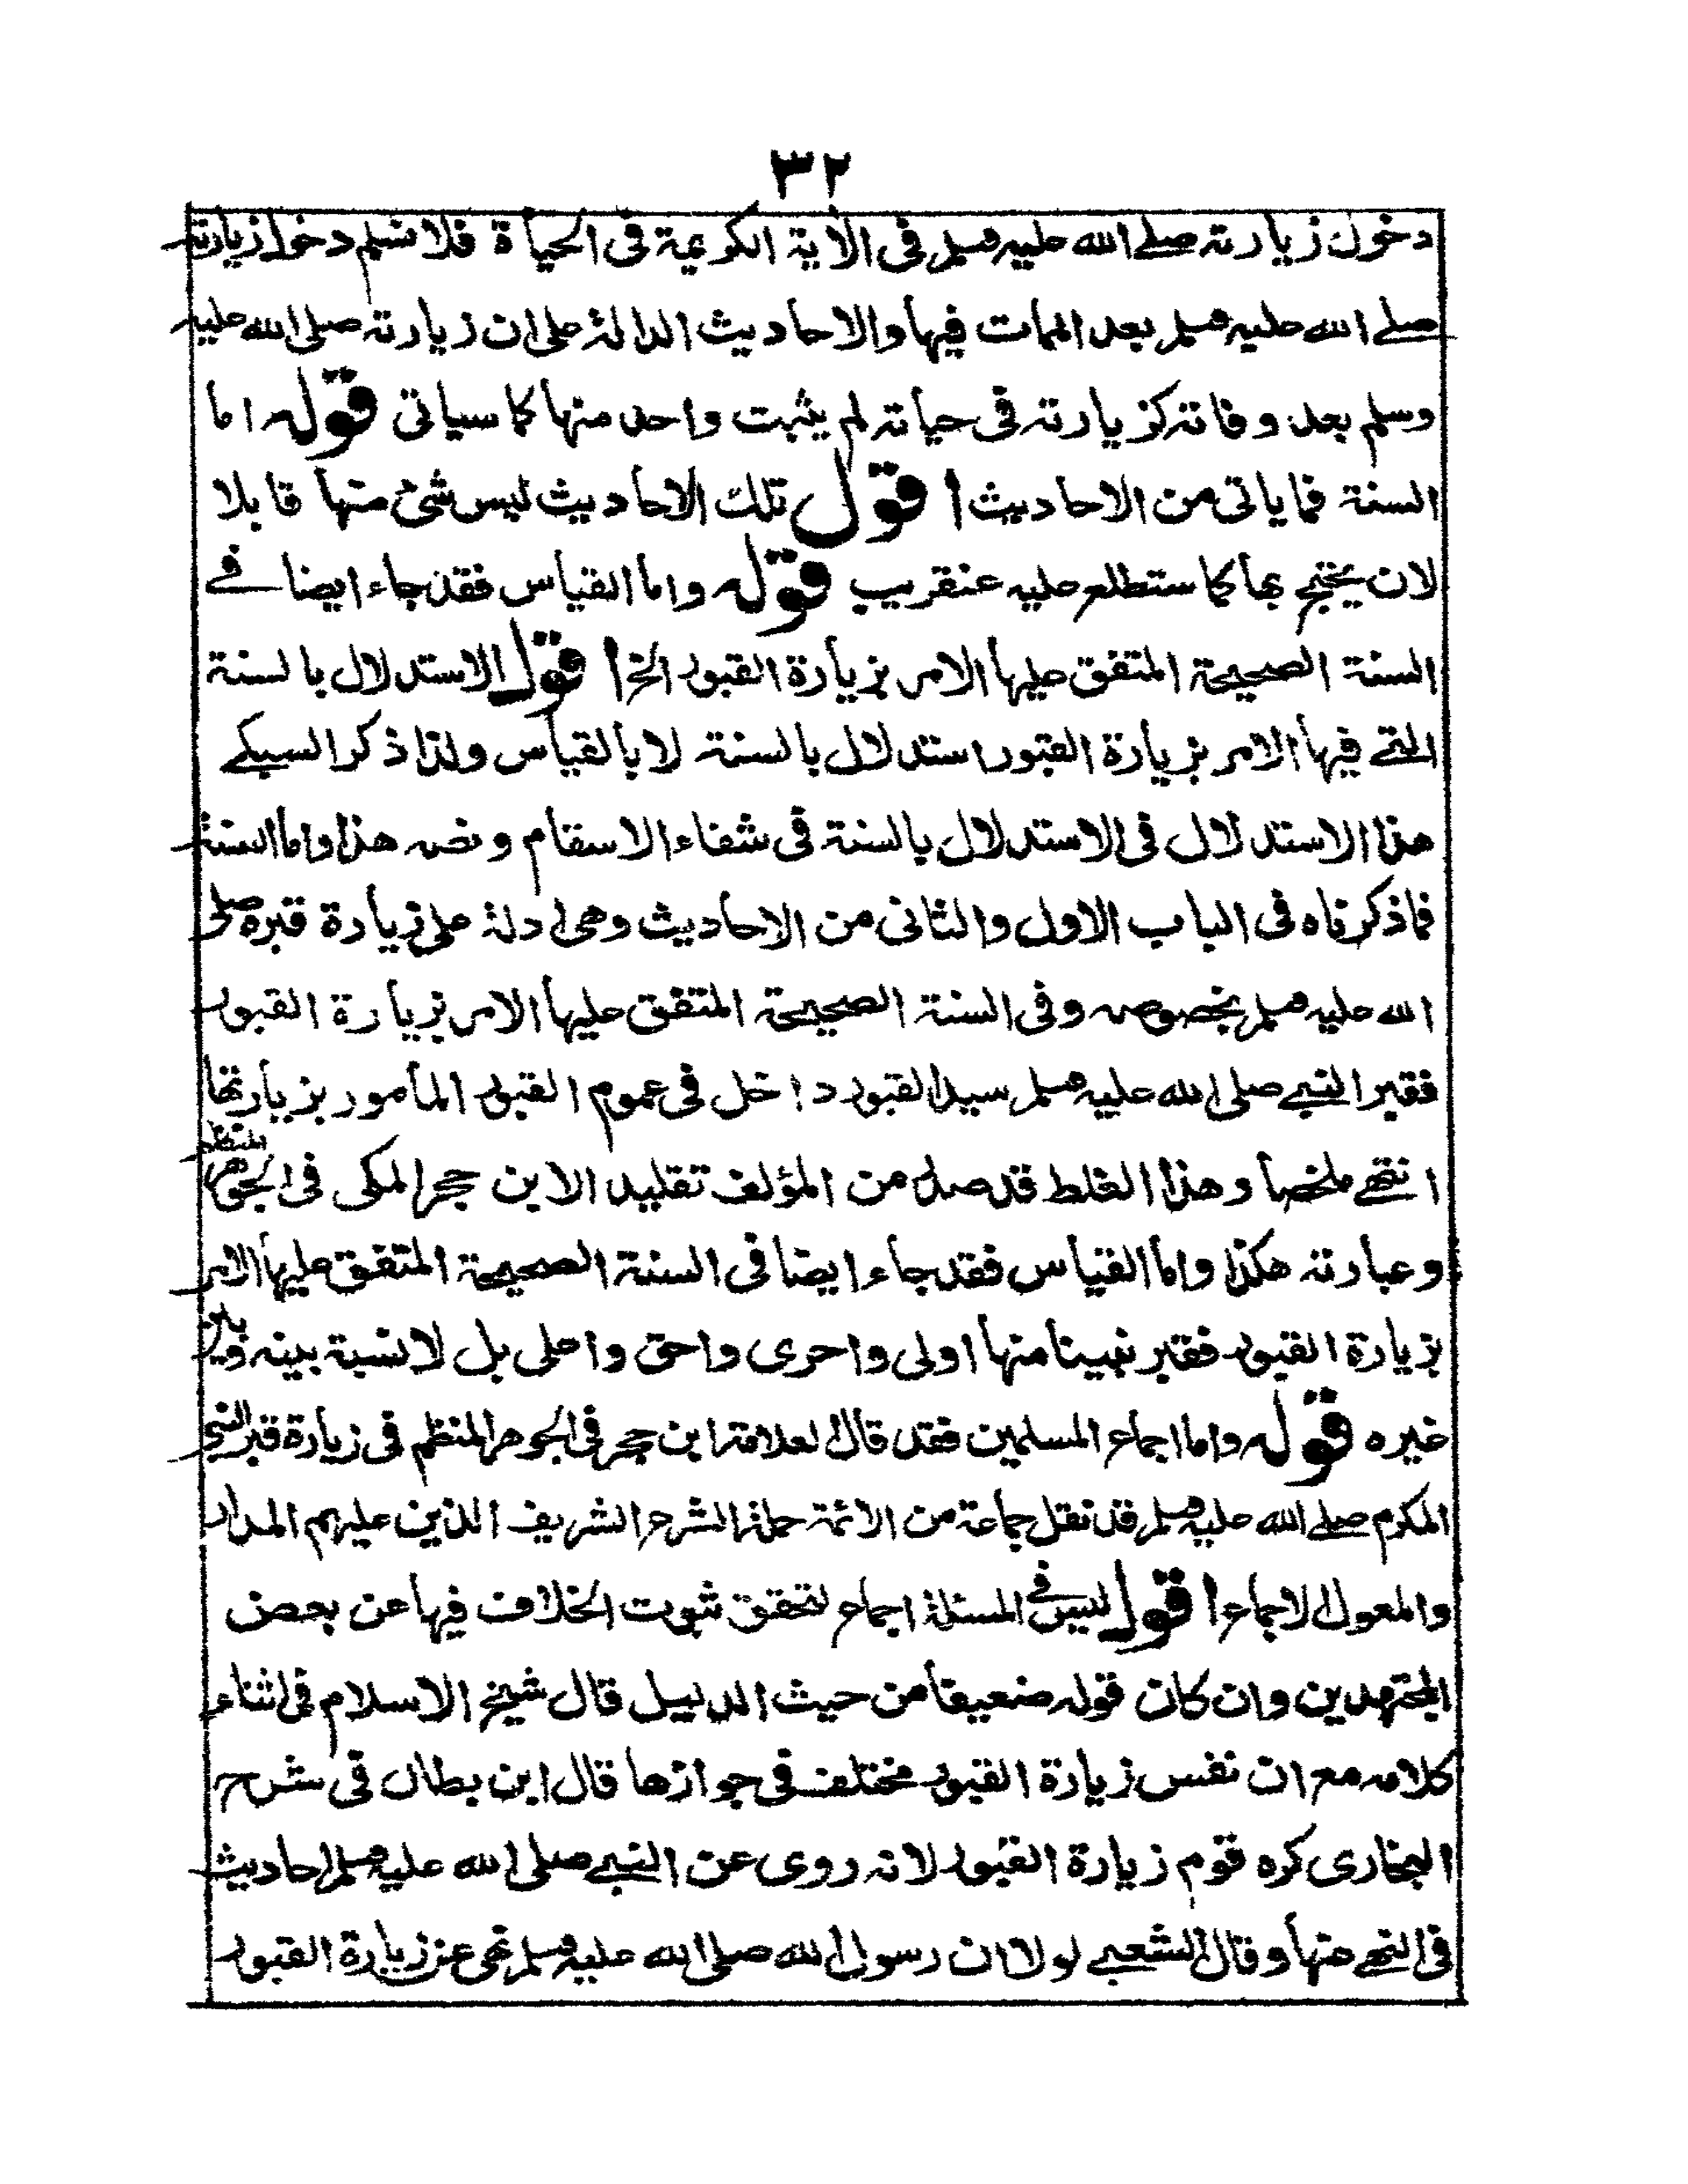 ٣٢
دخول زيارته صلے الله عليه وسلم فی الاية الكريمة فی الحياة فلا نسلم دخول زيارته
صلے الله عليه وسلم بعد الممات فيها والاحاديث الدالة علی ان زيارته صلی الله عليه
وسلم بعد وفاته كزيارته فی حياته لم يثبت واحد منها كما سياتی قوله اما
السنة فما ياتی من الاحاديث اقول تلك الاحاديث ليس شئ منها قابلا
لان يحتج بها كما ستطلع عليه عنقريب قوله واما القياس فقد جاء ايضا فے
السنة الصحيحة المتفق عليها الامر بزيارة القبور الخ اقول الاستدلال بالسنة
التے فيها الامر بزيارة القبور استدلال بالسنة لا بالقياس ولذا ذكر السبكے
هذا الاستدلال فی الاستدلال بالسنة فی شفاء الاسقام ونصه هذا واما السنة
فما ذكرناه فی الباب الاول والثانی من الاحاديث وهی ادلة علی زيارة قبره صلی
الله عليه وسلم بخصوصه وفی السنة الصحيحة المتفق عليها الامر بزيارة القبور
فقبر النبے صلی الله عليه وسلم سيد القبور داخل فی عموم القبور المأمور بزيارتها
انتهے ملخصا وهذا الغلط قد صدر من المؤلف تقليد الابن حجر المكی فی الجوهر المنظم
وعبارته هكذا واما القياس فقد جاء ايضا فی السنة الصحيحة المتفق عليها الامر
بزيارة القبور فقبر نبينا منها اولی واحری واحق واعلی بل لا نسبة بينه وبين
غيره قوله واما اجماع المسلمين فقد قال العلامة ابن حجر فی الجوهر المنظم فی زيارة قبر النبی
المكرم صلے الله عليه وسلم قد نقل جماعة من الائمة حملة الشرع الشريف الذين عليهم المدار
والمعول الاجماع اقول ليس فے المسئلة اجماع لتحقق ثبوت الخلاف فيها عن بعض
المجتهدين وان كان قوله ضعيفا من حيث الدليل قال شيخ الاسلام فی اثناء
كلامه مع ان نفس زيارة القبور مختلف فی جوازها قال ابن بطال فی شرح
البخاری كره قوم زيارة القبور لانه روی عن النبے صلی الله عليه وسلم احاديث
فی النهے عنها وقال الشعبے لولا ان رسول الله صلی الله عليه وسلم نهی عن زيارة القبور